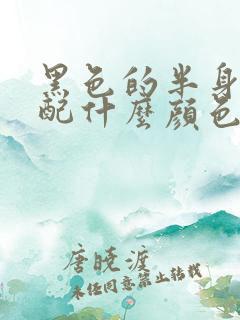 黑色的半身
配什麼顏色
唐曉渡
未经同意禁止转载